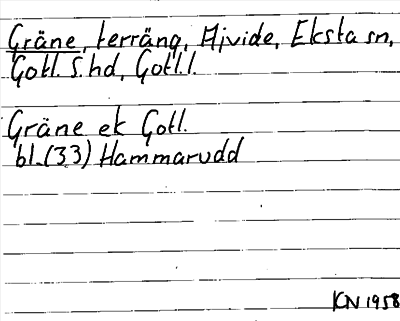 Gräne, terräng, Ajvide, Eksta sn,
Gotl. S. hd, Gotl. l.
Gräne ek Gotl.
bl. (33) Hammarudd
KN 1958